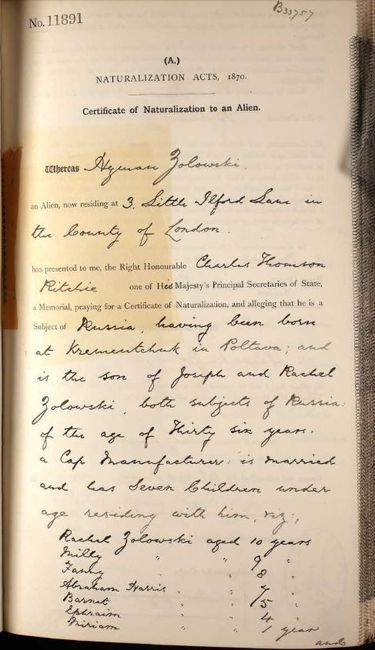 No. 11891
B33757
(A.)
NATURALIZATION ACTS, 1870.
Certificate of Naturalization to an Alien.
Whereas Hyman Zolowski.
an Alien, now residing at 3. Little Ilford Lane in
the County of London.
has presented to me, the Right Honourable Charles Thomson
Ritchie one of His Majesty's Principal Secretaries of State,
a Memorial, praying for a Certificate of Naturalization, and alleging that he is a
Subject of Russia, having been born
at Krementchuk in Poltava; and
is the son of Joseph and Rachel
Zolowski, both subjects of Russia:
of the age of Thirty six years.
a Cap Manufacturer: is married
and has Seven Children under
age residing with him, viz:,
Rachel Zolowski aged 10 years
Milly " " 9 "
Fanny " " 8 "
Abraham Harris " " 7 "
Barnet " " 5 "
Ephraim " " 4 "
Miriam " " 1 year
and